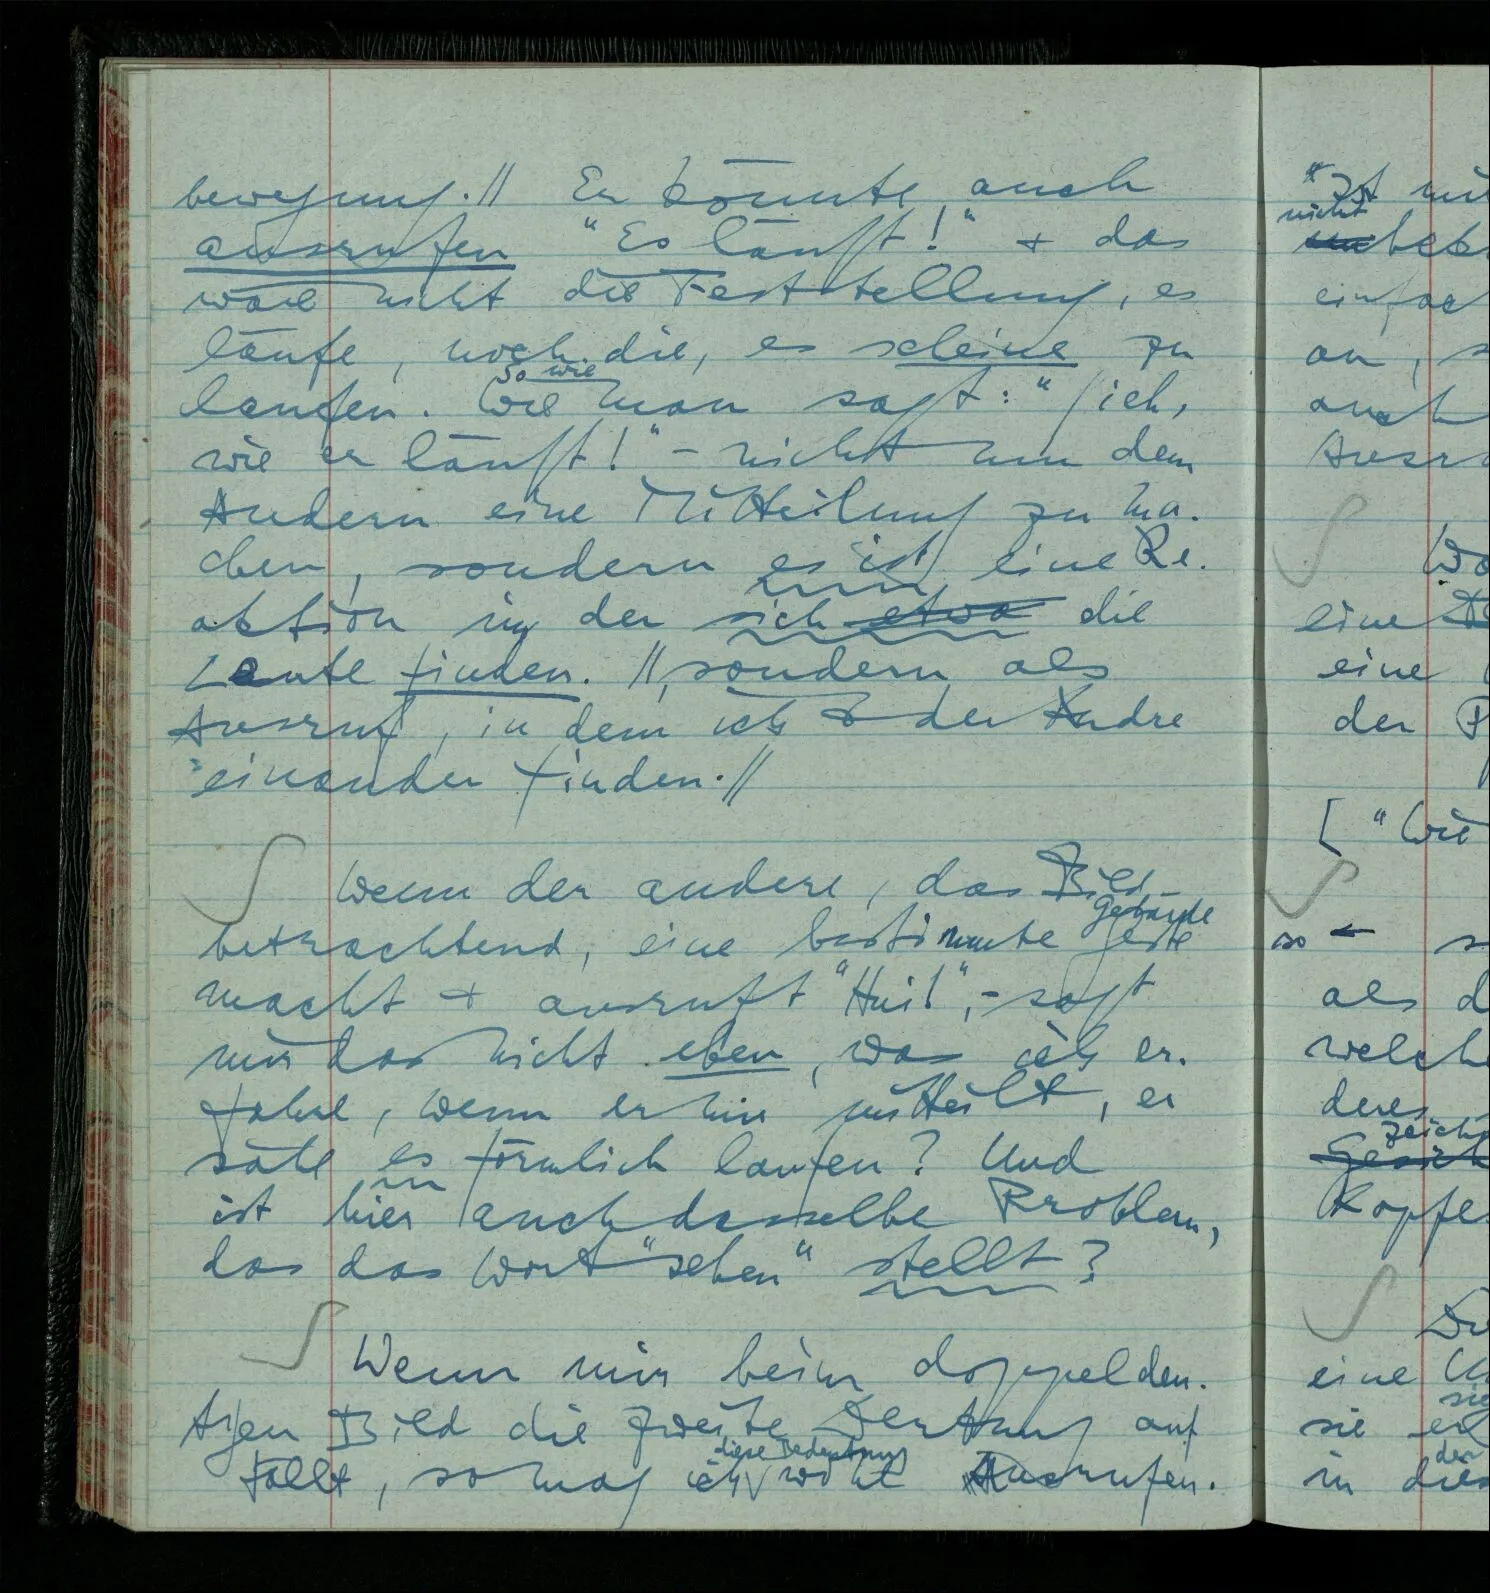 bewegung. // Er könnte auch
ausrufen "Es läuft!" + das
wäre nicht die Feststellung, es
läufe, noch die, es scheine zu
so wie
laufen. Wie man sagt: "Sieh,
wie er läuft!" – nicht um dem
Andern eine Mitteilung zu ma-
chen, sondern es ist eine Re-
aktion in der sich etwa die
Leute finden. // sondern als
Ausruf, in dem ich & der Andre
einander finden. //
Wenn der andere, das Bild
Gebärde
betrachtend, eine bestimmte Geste
macht + ausruft "Hui!", – sagt
mir das nicht eben, was ich er-
fahre, wenn er mir mitteilt, er
sähe es förmlich laufen? Und
ist hier auch dasselbe Problem,
das das Wort "sehen" stellt?
Wenn mir beim doppeldeu-
tigen Bild die zweite Deutung auf
diese Bedeutung
fällt, so mag ich wohl Ausrufen.
"Ist
nicht
einfac
an, s
auch
Ausr
Wo
eine
eine
der
[ "Wie
so
als d
welch
deres
Zeich
Gesich
Kopfe
eine
sie
sie
der
in dies